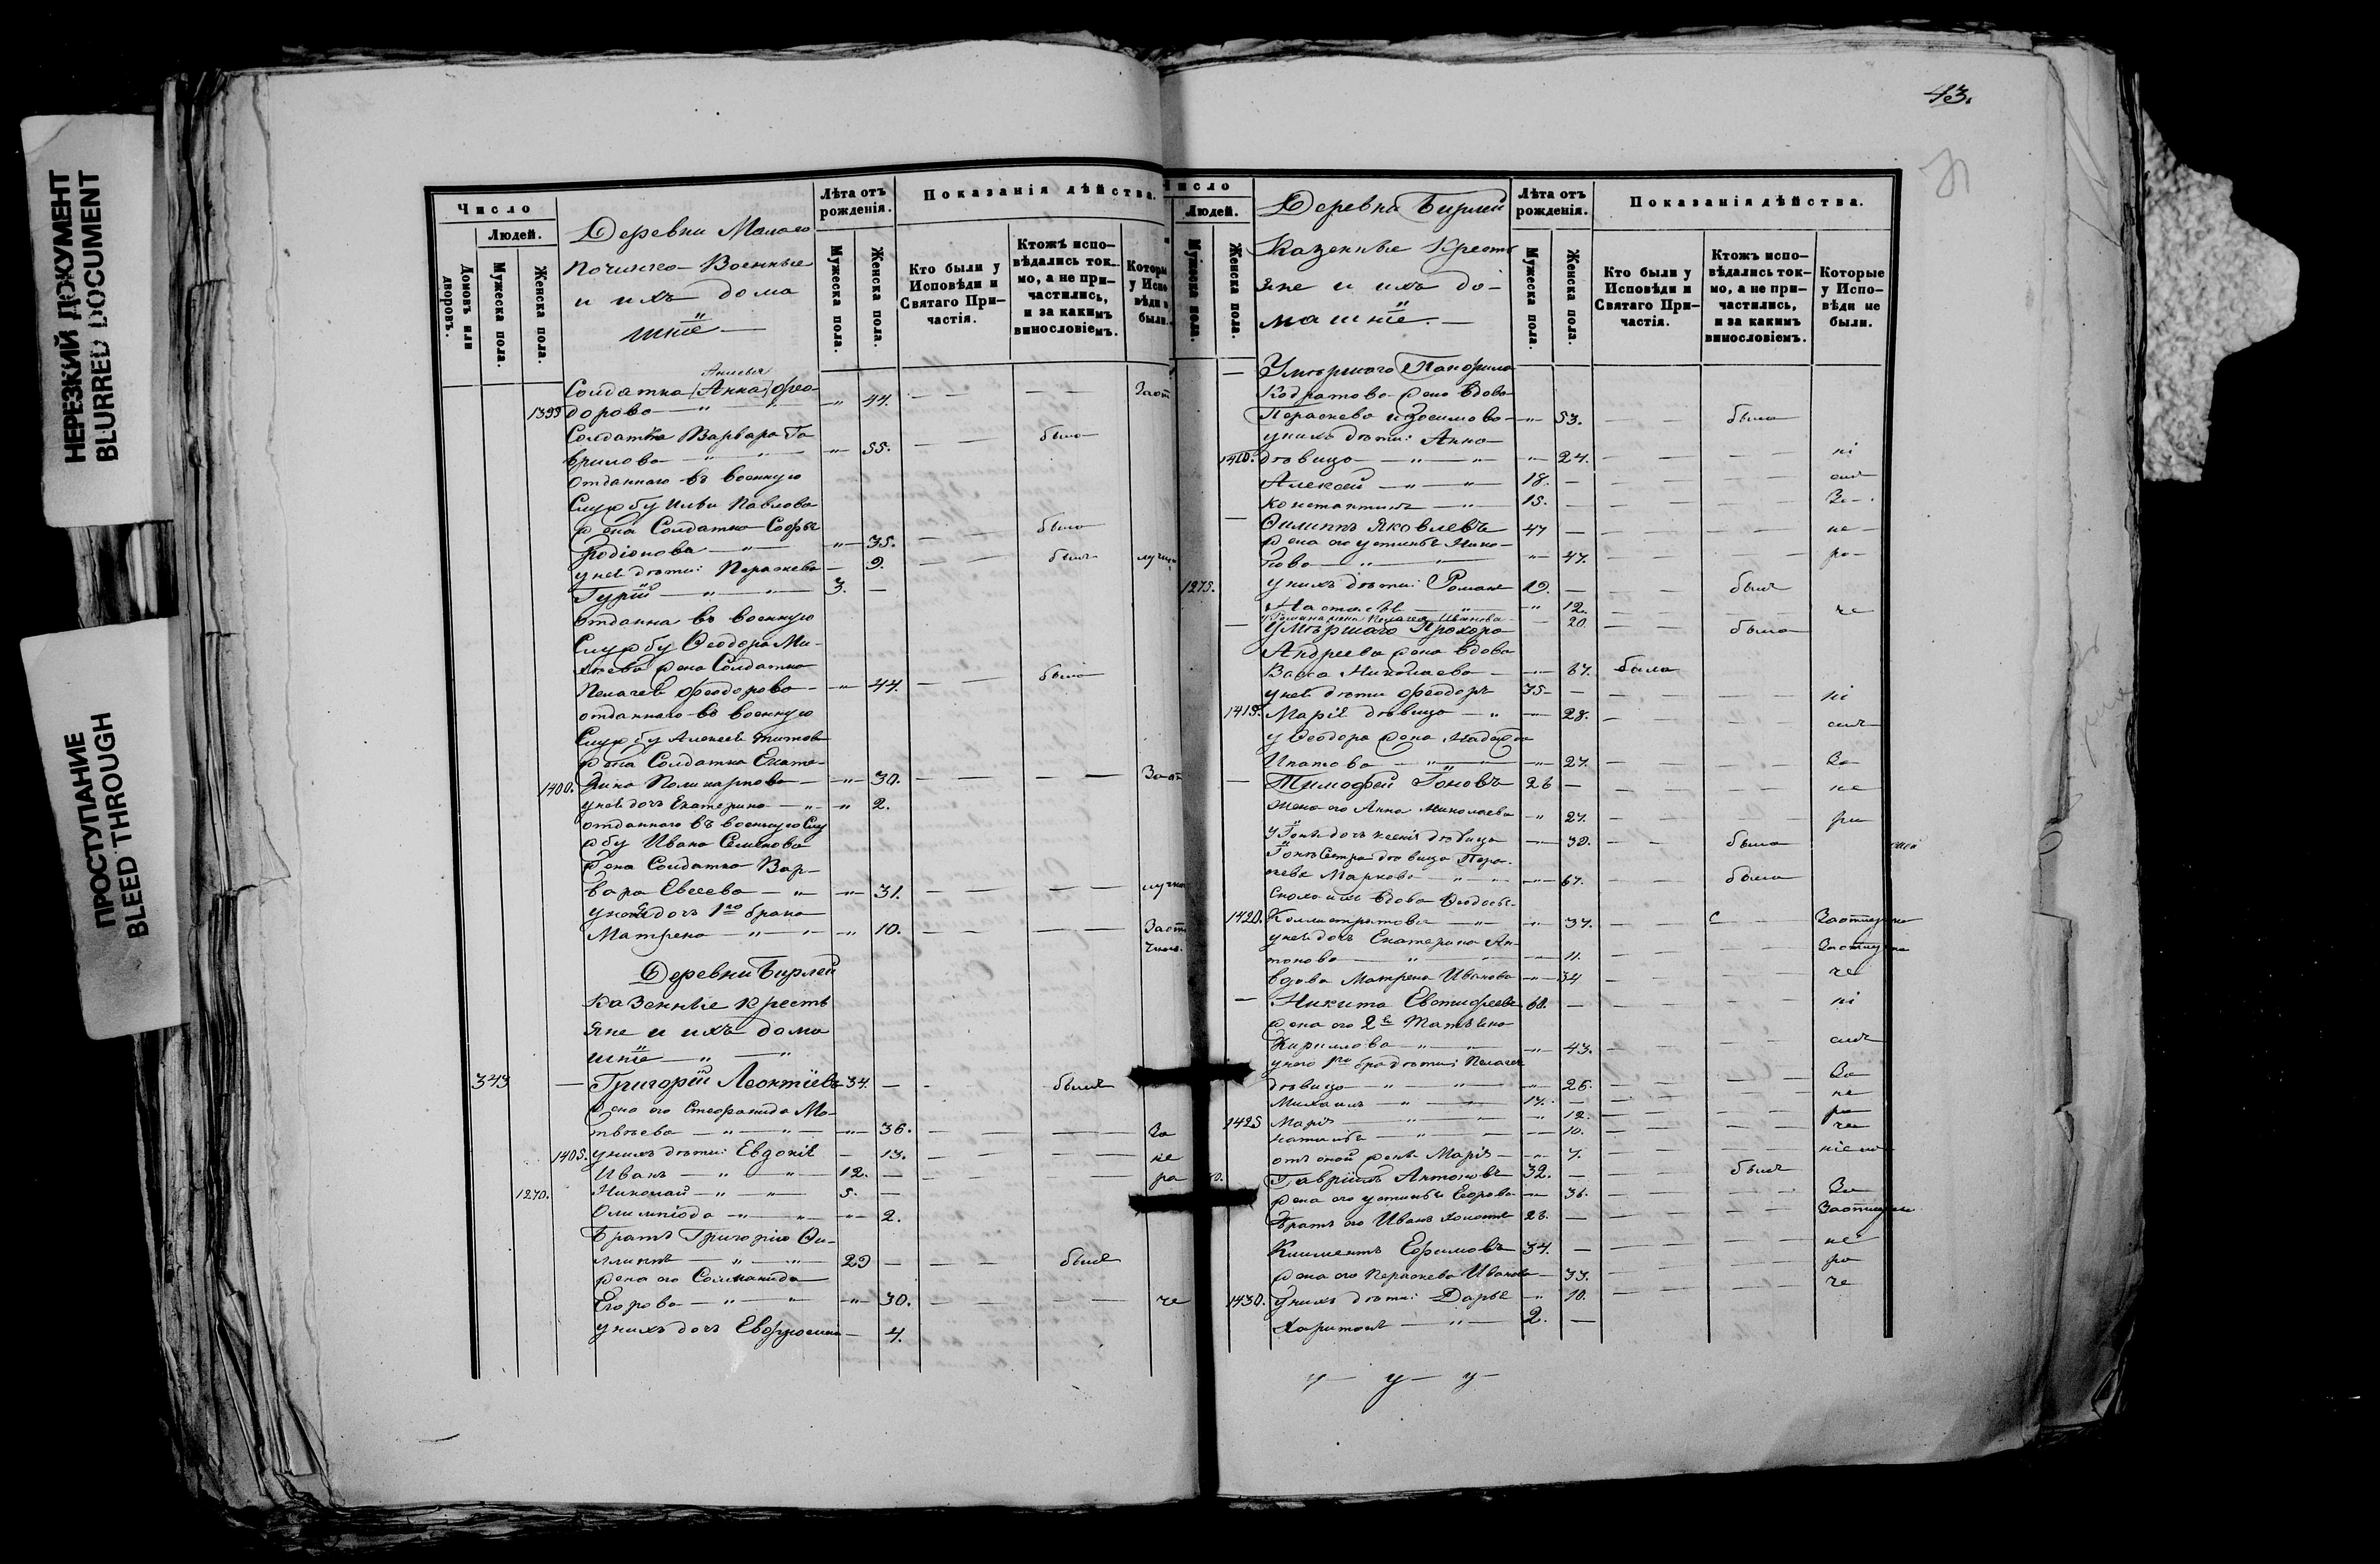 НЕРЕЗКИЙ ДОКУМЕНТ
BLURRED DOCUMENT
ПРОСТУПАНИЕ
BLEED THROUGH
Число
Людей.
Домовъ или дворовъ.
Мужеска пола.
Женска пола.
Деревни Малаго
Починка Военные
и ихъ дома
шніе
Лѣта отъ рожденія.
Мужеска пола.
Женска пола.
Показанія дѣйства.
Кто были у Исповѣди и Святаго Причастія.
Ктожъ исповѣдались токмо, а не причастились, и за какимъ винословіемъ.
Солдатка Анна Ѳео-
1395 дорова 44.
Солдатка Варвара Га-
врилова 55. была
Отданнаго въ военную
Службу Ильи Павлова
жена Солдатка Софья
Родіонова 35. была
у ней дѣти: Параскева 9.
Гурій 3.
отданна въ военную
Службу Ѳеодора Ми-
жена Солдатка
Пелагея Ѳеодорова 44. была
отданнаго въ военную
Службу Алексея Титова
жена Солдатка Екате-
1400. рина Поликарпова 30.
у ней дочь Екатерина 2.
отданнаго въ военную Слу
жбу Ивана Семенова
жена Солдатка Вар-
вара Евсеева 31.
дочь 1го брака
Матрена 10.
Деревни Бирлей
казенные кресть
яне и ихъ дома
шніе
343 Григорій Леонтіевъ 34. былъ
жена его Стефанида Ма-
твѣева 36. За
1405. у нихъ дѣти: Евдокія 13. не
Иванъ 12. ра
1270. Николай 5.
Олимпіода 2.
Братъ Григорія Фи-
липпъ 29 былъ
жена его Соломанида
Егорова 30. че
у нихъ дочь Евфросинія 4.
43.
Число
Людей.
Мужеска пола.
Женска пола.
Деревни Бирлей
Казенные Кресть
яне и ихъ до-
машніе.
Лѣта отъ рожденія.
Мужеска пола.
Женска пола.
Показанія дѣйства.
Кто были у Исповѣди и Святаго Причастія.
Ктожъ исповѣдались токмо, а не причастились, и за какимъ винословіемъ.
Которые у Исповѣди не были.
Умершаго Панфила
Кодратова жена вдова
Параскева Изосимова 53. была
у нихъ дѣти: Анна
1410. дѣвица 24. ні
Алексей 18.
Константинъ 15. За
Филиппъ Яковлевъ 47 не
жена его Устинья Ники-
това 47. ра
1275. у нихъ дѣти: Романъ 19. былъ
Настасья 12. че
у Романа жена Пелагея Иванова 20. была
Умершаго Прохора
Андреева жена вдова
Васса Николаева 67. была
у ней дѣти Ѳеодоръ 35
1415. Марія дѣвица 28.
у Ѳеодора жена Надежда
Ипатова 27. За
Тимофей Іоновъ 26 не
Жена его Анна Николаева 27. ри
у Іоны дочь Ксенія дѣвица 30. была
Іоны Сестра дѣвица Пара-
скева Маркова 67. была
вдова Ѳеодосья
1420. Каллистратова 37. За отлучко
у ней дочь Екатерина Ан-
тонова 11. За отлучко
вдова Матрена Иванова 34 че
Никита Евтифеевъ 60. ні
жена его 2я Татьяна
Кириллова 43.
у него 1го бра дѣти: Пелагея
дѣвица 26. За
Михаилъ 17. не
1425 Марія 12. ра
Наталья 10. че
отъ оной жены Марія 7.
Гавріилъ Антоновъ 32. былъ
жена его Устинья Егорова 36. За
братъ его Иванъ холостъ 28. За отлучко
Климентъ Ефимовъ 34. не
жена его Параскева Иванова 33. ра
1430. у нихъ дѣти: Дарья 10. че
Харитонъ 2.